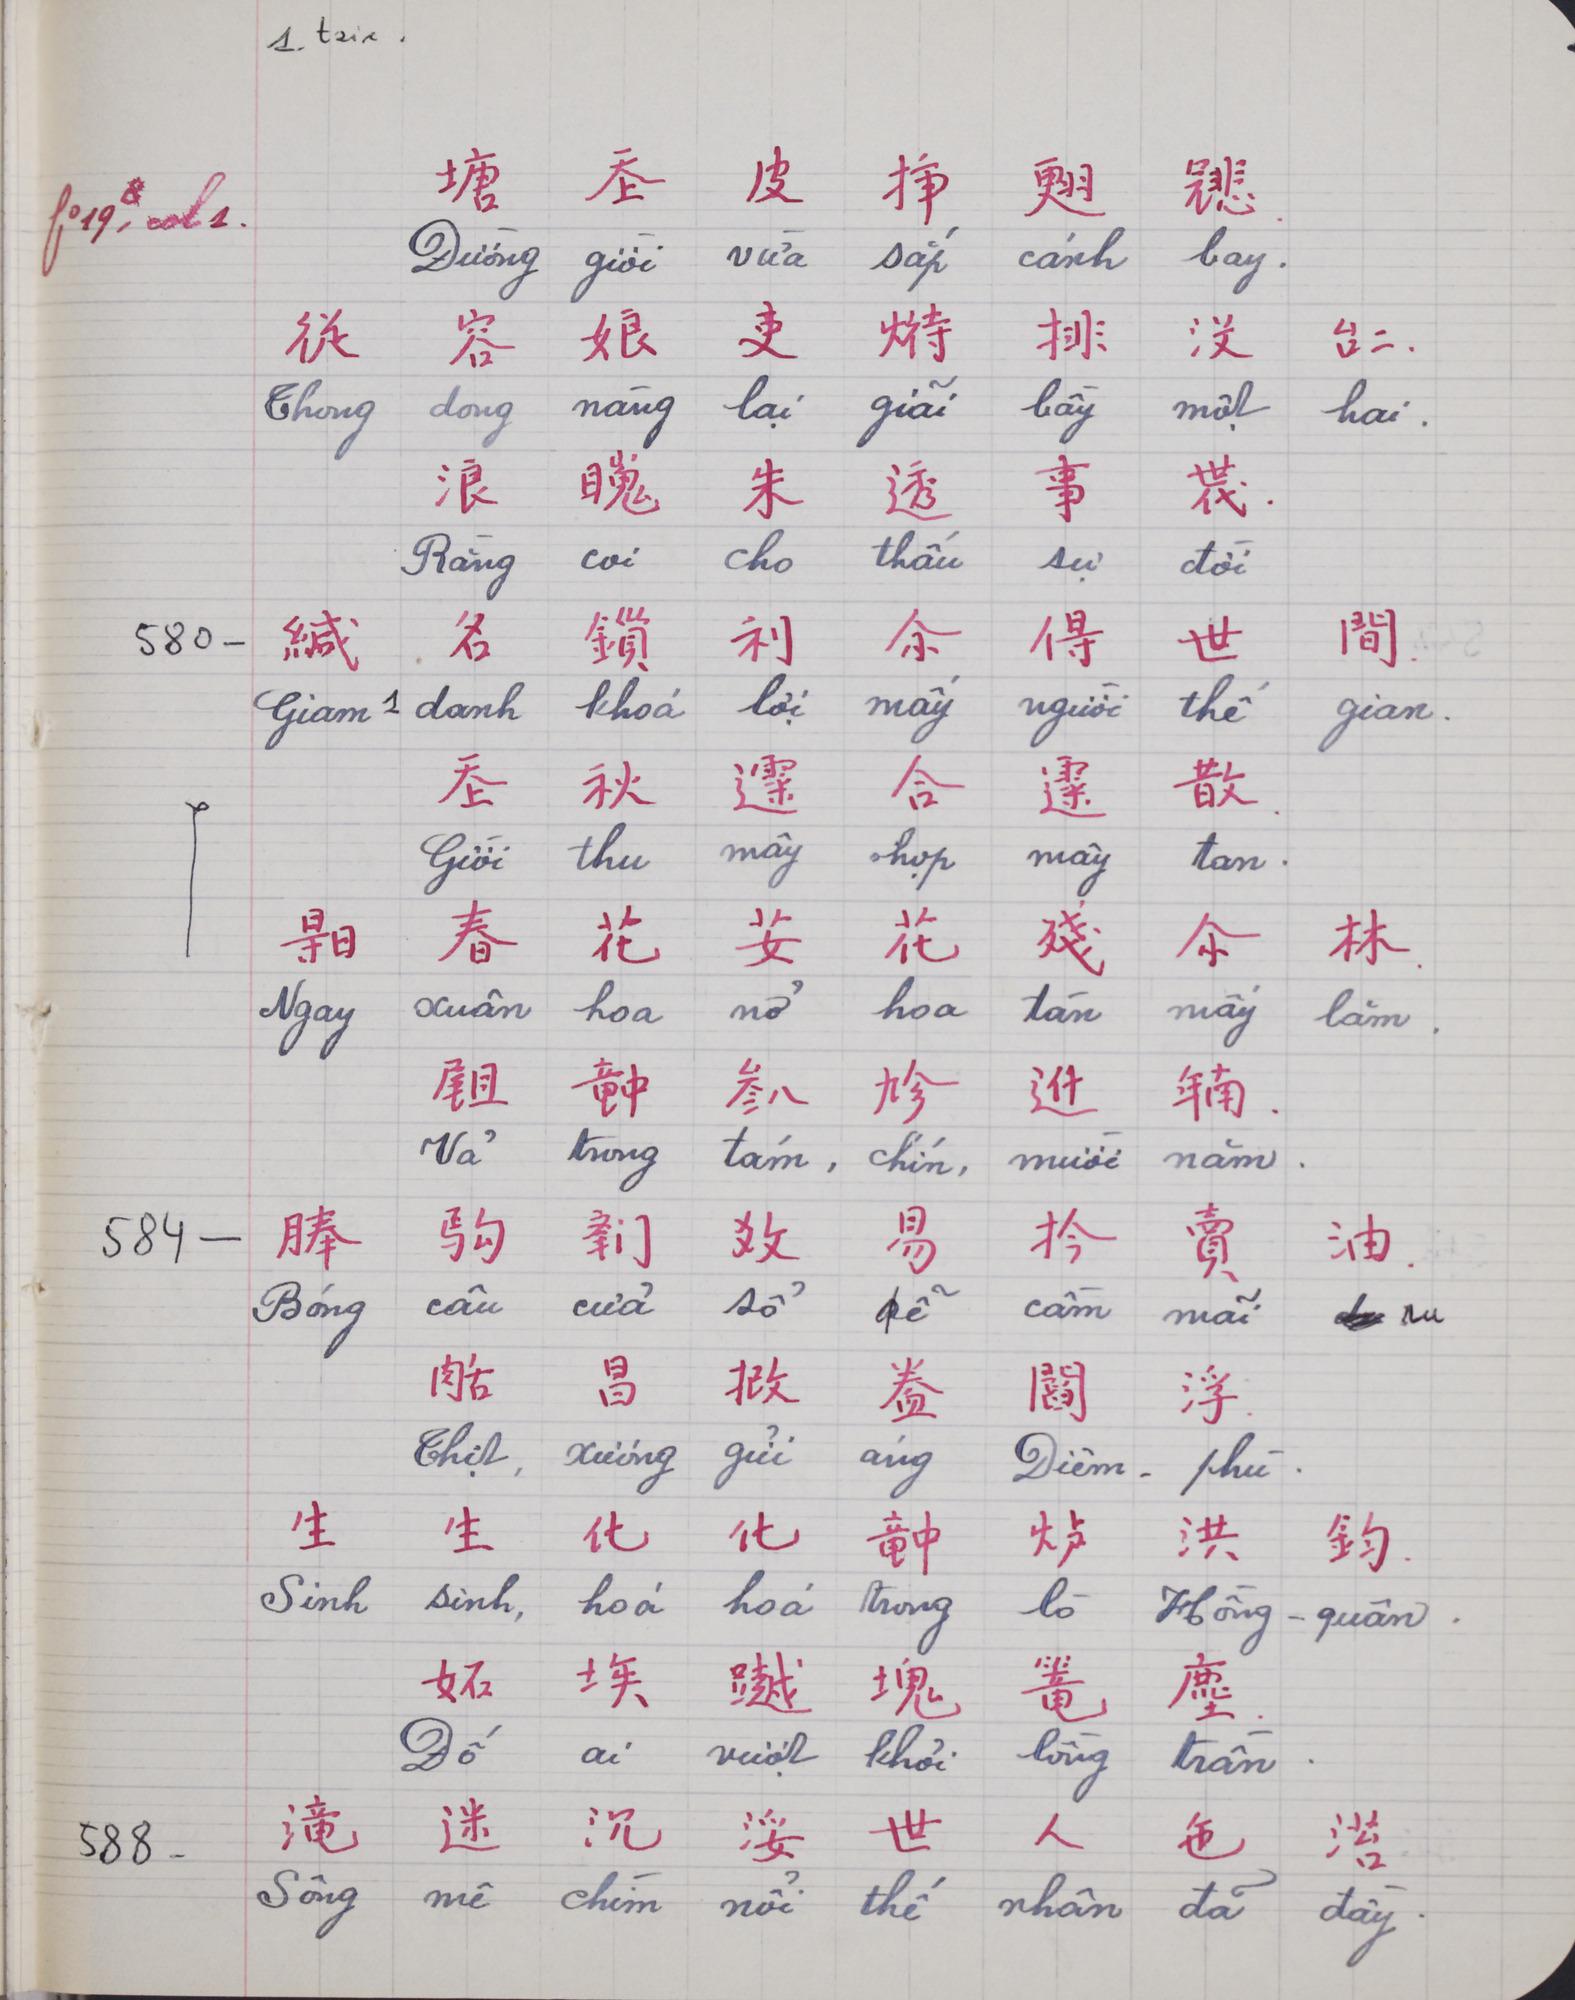 1. trix.
塘 𡗶 皮 揷 翅 𢒎
fº 19, col 1.
Đường giời vừa sắp cánh bay.
從 容 娘 吏 𤉒 排 没 𠄩.
Thong dong nàng lại giãi bầy một hai.
浪 𥊖 朱 透 事 𠁀.
Rằng coi cho thấu sự đời
580- 緘 名 鎖 利 尒 得 世 間.
Giam 1 danh khoá lợi mấy người thế gian.
𡗶 秋 𩄲 合 𩄲 散.
Giời thu mây hợp mây tan.
𣈜 春 花 𦬑 花 殘 尒 林.
Ngay xuân hoa nở hoa tàn mấy lăm.
𡲤 𥪝 𠔭 𠃩 𨑮 𢆥.
Vả trong tám, chín, mười năm.
584- 𩃳 駒 𨷯 数 易 扲 賣 油.
Bóng câu cửa sổ dễ cầm mãi ru
𦧜 昌 𢭮 盎 閻 浮.
Thịt, xương gửi áng Diêm-phù.
生 生 化 化 𥪝 炉 洪 鈞.
Sinh sinh, hoá hoá trong lò Hồng-quân.
妬 埃 𨖅 塊 篭 塵.
Đố ai vượt khỏi lồng trần.
588- 滝 迷 沉 浽 世 人 㐌 𣹓
Sông mê chìm nổi thế nhân đã đầy.